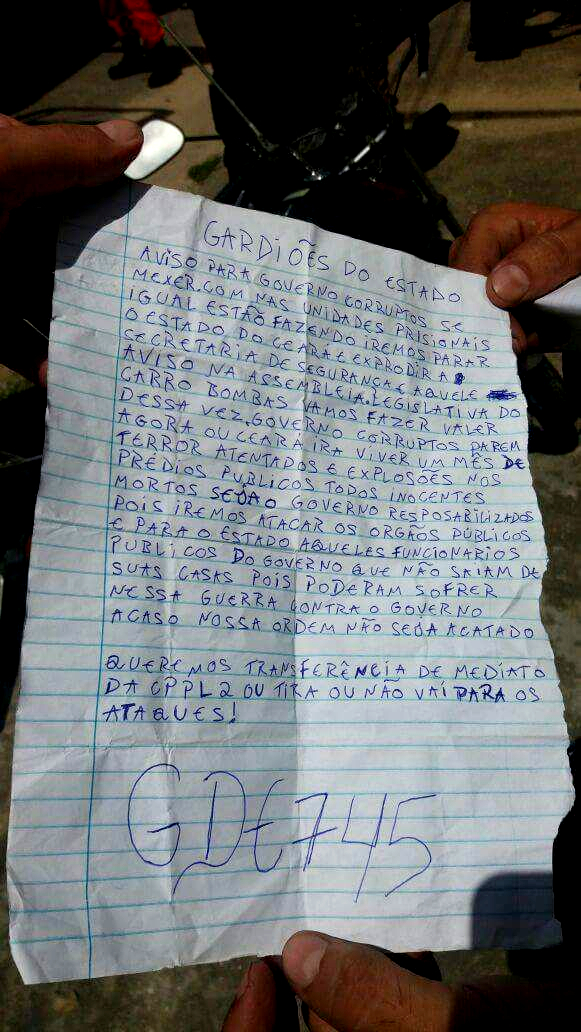 GARDIÕES DO ESTADO
AVISO PARA GOVERNO CORRUPTOS SE
MEXER.COM NAS UNIDADES PRISIONAIS
IGUAL ESTÃO FAZENDO IREMOS PARAR
O ESTADO DO CEARA E EXPRODIR A
SECRETARIA DE SEGURANÇA E AQUELE
AVISO NA ASSEMBLEIA.LEGISLATIVA DO
CARRO BOMBAS VAMOS FAZER VALER
DESSA VEZ.GOVERNO CORRUPTOS PAREM
AGORA OU CEARA IRA VIVER UM MÊS DE
TERROR ATENTADOS E EXPLOSÕES NOS
PRÉDIOS PUBLICOS TODOS INOCENTES
MORTOS SEJA O GOVERNO RESPOSABILIZADOS
POIS IREMOS ATACAR OS ORGÃOS PÚBLICOS
E PARA O ESTADO AQUELES FUNCIONARIOS
PUBLICOS DO GOVERNO QUE NÃO SAIAM DE
SUAS CASAS POIS PODERAM SOFRER
NESSA GUERRA CONTRA O GOVERNO
ACASO NOSSA ORDEM NÃO SEJA ACATADO
QUEREMOS TRANSFERÊNCIA DE MEDIATO
DA CPPL2 OU TIRA OU NÃO VAI PARA OS
ATAQUES!
GDE745